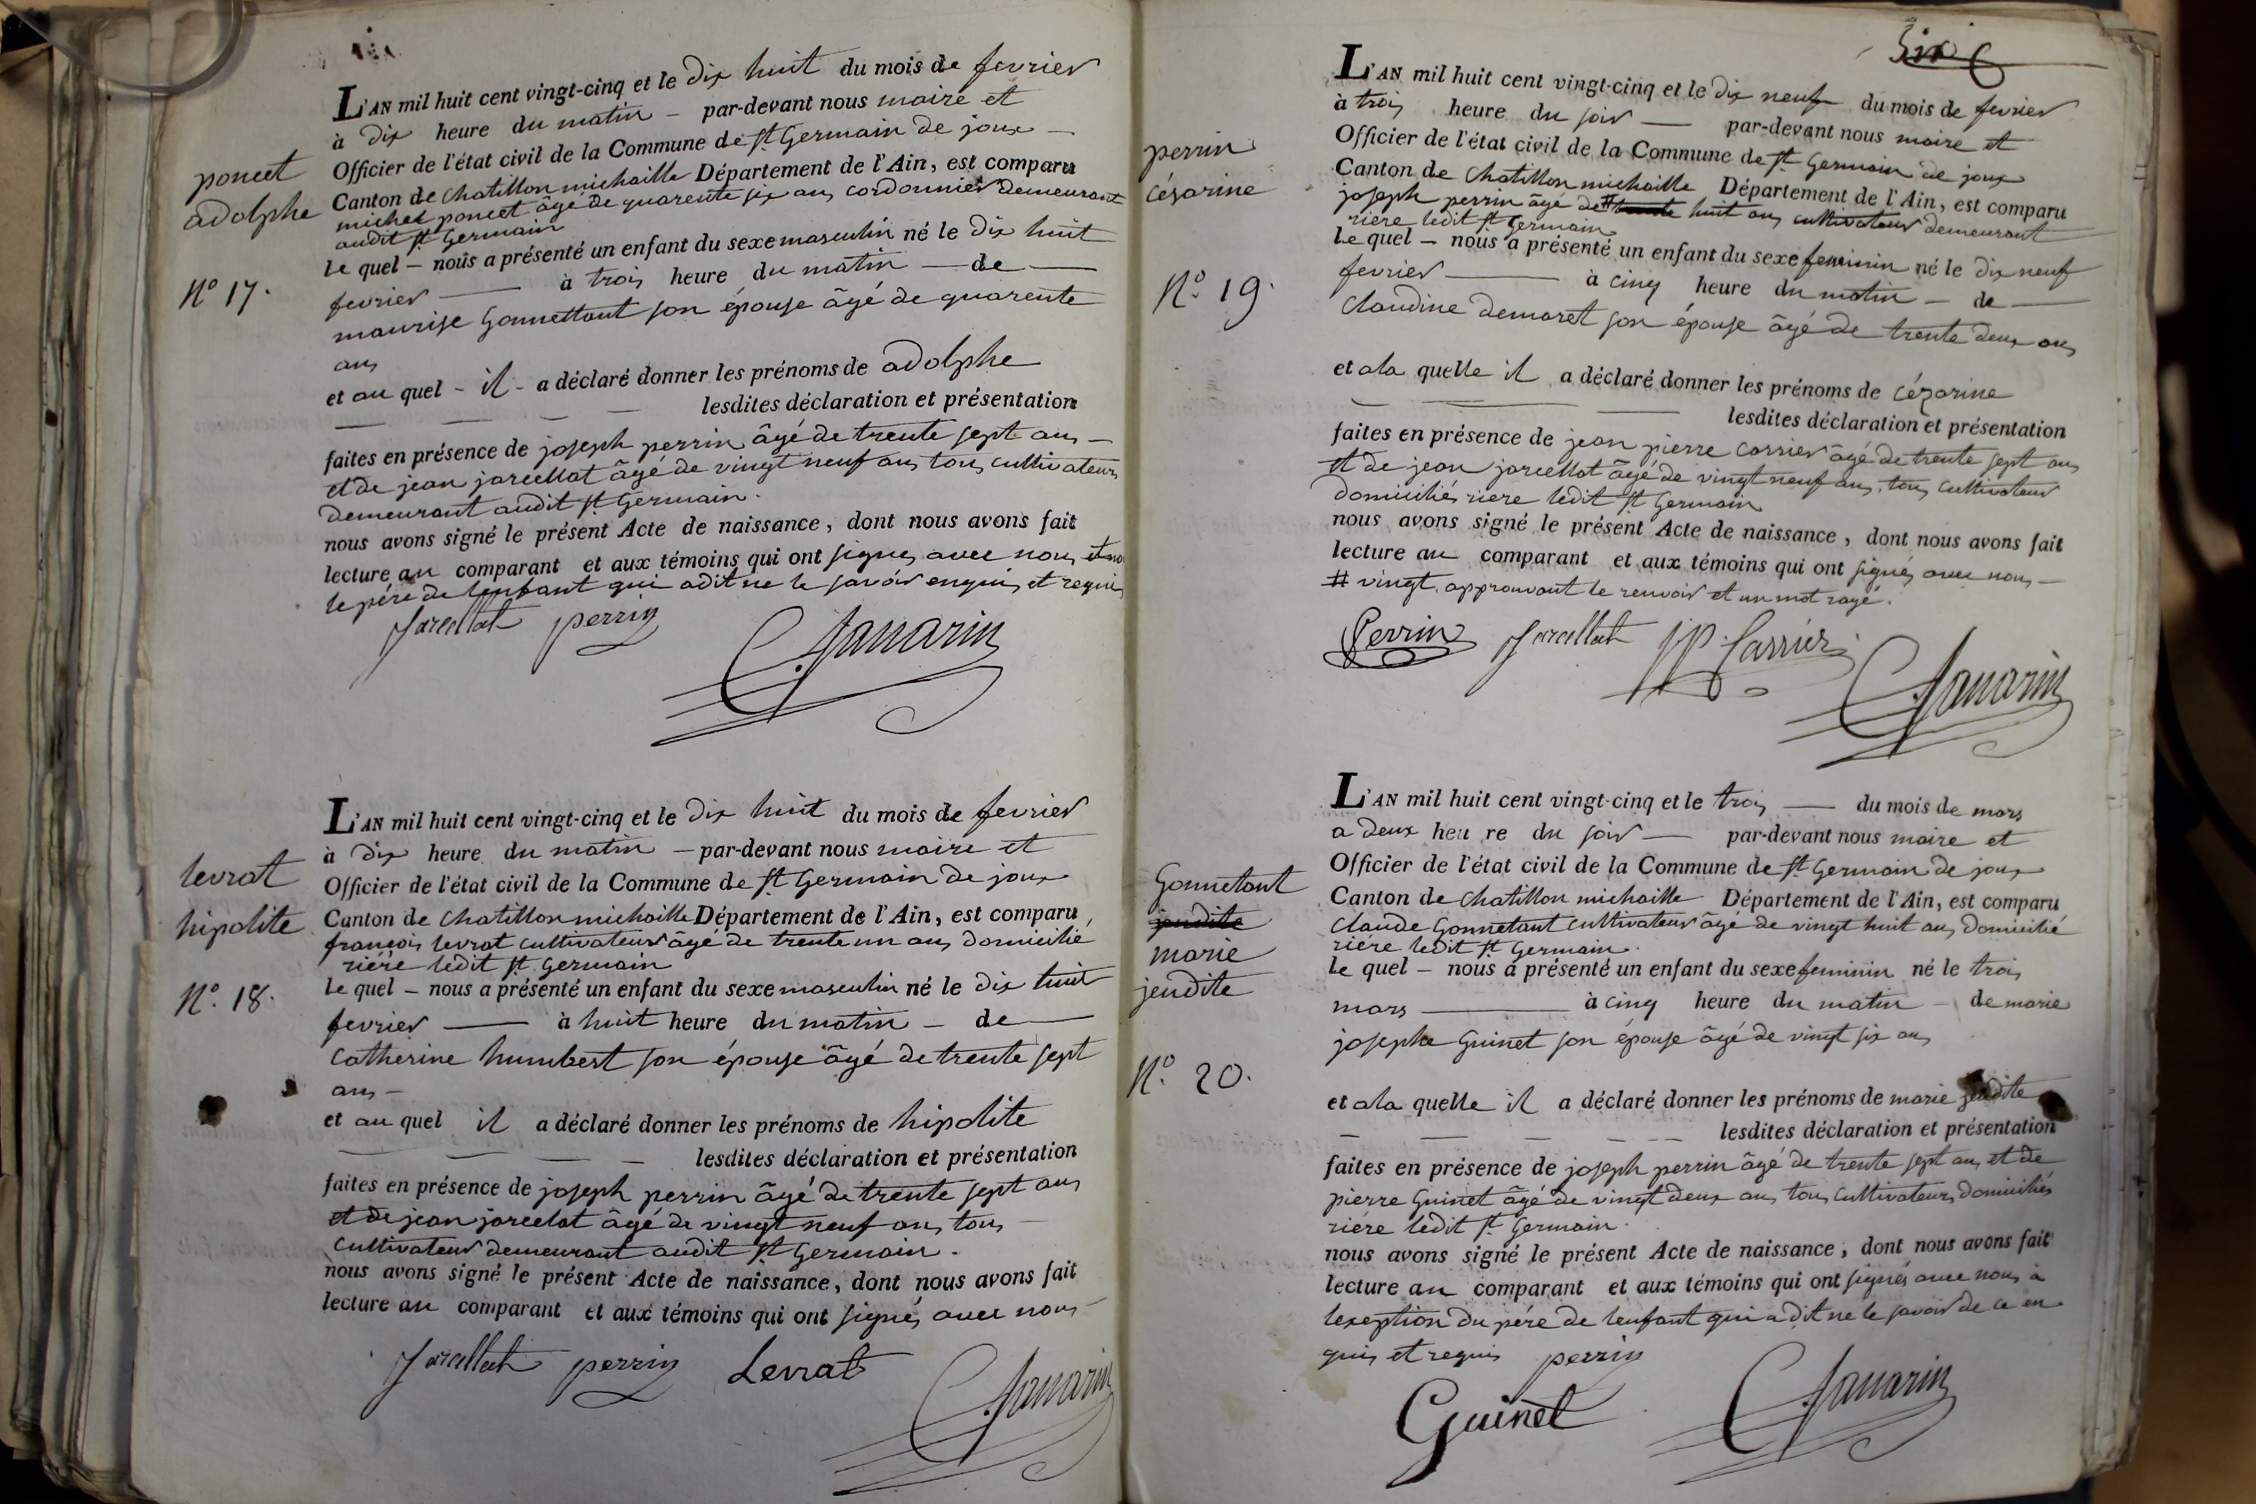 poncet
adolphe
N° 17.
L'AN mil huit cent vingt-cinq et le dix huit du mois de fevrier
à dix heure du matin – par-devant nous maire et
Officier de l'état civil de la Commune de St Germain de joux –
Canton de chatillon michaille Département de l'Ain, est comparu
michel poncet âgé de quarente six ans cordonnier demeurant
audit St Germain
le quel – nous a présenté un enfant du sexe masculin né le dix huit
fevrier — à trois heure du matin — de —
maurise Gonnettant son épouse âgé de quarente
ans
et au quel - il - a déclaré donner les prénoms de adolphe
— — — lesdites déclaration et présentation
faites en présence de joseph perrin âgé de trente sept ans –
et de jean jarcellat âgé de vingt neuf ans tous cultivateurs
demeurant audit St Germain.
nous avons signé le présent Acte de naissance, dont nous avons fait
lecture au comparant et aux témoins qui ont signés avec nous et non
le pére de lenfant qui adit ne le savoir enquis et requis
Jarcellat perrin C. Janarin
levrat
hipolite
N° 18.
L'AN mil huit cent vingt-cinq et le dix huit du mois de fevrier
à dix heure du matin – par-devant nous maire et
Officier de l'état civil de la Commune de St Germain de joux
Canton de chatillon michaille Département de l'Ain, est comparu,
françois levrat cultivateur âgé de trente un ans domicilié
riére ledit St Germain
le quel – nous a présenté un enfant du sexe masculin né le dix huit
fevrier — à huit heure du matin – de —
catherine humbert son épouse âgé de trente sept
ans –
et au quel il a déclaré donner les prénoms de hipolite
— — — — lesdites déclaration et présentation
faites en présence de joseph perrin âgé de trente sept ans
et de jean jarcelat âgé de vingt neuf ans tous –
cultivateur demeurant audit St Germain.
nous avons signé le présent Acte de naissance, dont nous avons fait
lecture au comparant et aux témoins qui ont signés avec nous –
Jarcellat perrin Levrat C. Janarin
Six 6
perrin
césarine
N° 19.
L'AN mil huit cent vingt-cinq et le dix neuf du mois de fevrier
à trois heure du soir — par-devant nous maire et
Officier de l'état civil de la Commune de St Germain de joux
Canton de chatillon michaille Département de l'Ain, est comparu
joseph perrin âgé de # trente huit ans cultivateur demeurant
riere ledit St Germain
le quel – nous a présenté un enfant du sexe feminin né le dix neuf
fevrier — à cinq heure du matin – de —
claudine demaret son épouse âgé de trente deux ans
et ala quelle il a déclaré donner les prénoms de cézarine
— — — lesdites déclaration et présentation
faites en présence de jean pierre carrier âgé de trente sept ans
et de jean jarcellat âgé de vingt neuf ans, tous cultivateur
domiciliés riere ledit St Germain
nous avons signé le présent Acte de naissance, dont nous avons fait
lecture au comparant et aux témoins qui ont signés avec nous –
# vingt. approuvant le renvoir et un mot rayé.
Perrin Jarcellat JP. Carrier C. Janarin
Gonnetant
jeudite
marie
jeudite
N° 20.
L'AN mil huit cent vingt-cinq et le trois — du mois de mars
a deux heure du soir — par-devant nous maire et
Officier de l'état civil de la Commune de St Germain de joux
Canton de chatillon michaille Département de l'Ain, est comparu
claude Gonnetant cultivateur âgé de vingt huit ans domicilié
riére ledit St Germain.
le quel – nous a présenté un enfant du sexe feminin né le trois
mars — à cinq heure du matin – de marie
josephe Guinet son épouse âgé de vingt six ans
et ala quelle il a déclaré donner les prénoms de marie jeudite
— — — — lesdites déclaration et présentation
faites en présence de joseph perrin âgé de trente sept ans et de
pierre Guinet âgé de vingt deux ans tous cultivateurs domiciliés
riére ledit St Germain.
nous avons signé le présent Acte de naissance, dont nous avons fait
lecture au comparant et aux témoins qui ont signés avec nous à
lexeption du pére de lenfant qui a dit ne le savoir de ce en
quis et requis perrin
Guinet C. Janarin